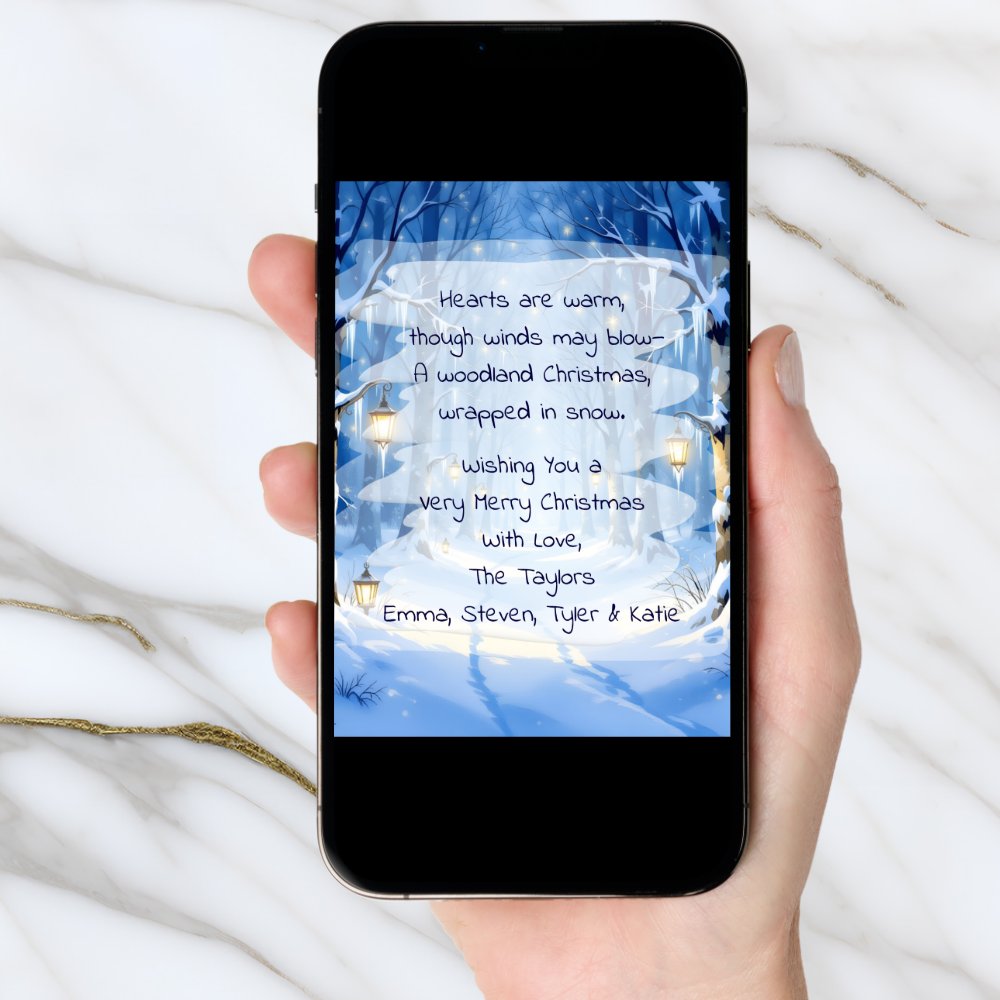 Hearts are warm,
though winds may blow–
A woodland Christmas,
wrapped in snow.
Wishing You a
Very Merry Christmas
With Love,
The Taylors
Emma, Steven, Tyler & Katie